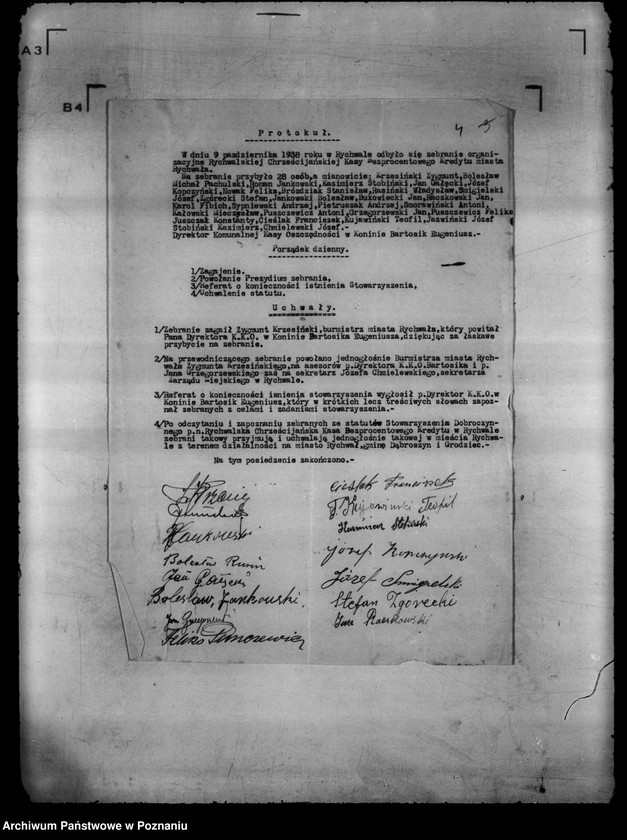 A3
B4
4 5
Protokuł.
W dniu 9 października 1938 roku w Rychwale odbyło się zebranie organi-
zacyjne Rychwalskiej Chrześcijańskiej Kasy Bezprocentowego Kredytu miasta
Rychwała.
Na zebranie przybyło 28 osób, a mianowicie: Krzesiński Zygmunt, Bolesław
Michał Pachulski, Roman Jankowski, Kazimierz Stobiński, Jan Gałęcki, Józef
Kopczyński, Nowak Feliks, Bródziak Stanisław, Władysław, Śmigielski
Józef, Zgórecki Stefan, Jankowski Bolesław, Bukowiecki Jan, Raczkowski Jan,
Karol Fibich, Sypniewski Andrzej, Pietruszak Andrzej, Smorawiński Antoni,
Kałowski Mieczysław, Puszczewicz Antoni, Grzegorzewski Jan, Puszczewicz Feliks
Juszczak Konstanty, Cieślak Franciszek, Kujawiński Teofil, Jaźwiński Józef
Stobiński Kazimierz, Chmielewski Józef.-
Dyrektor Komunalnej Kasy Oszczędności w Koninie Bartosik Eugeniusz.-
Porządek dzienny.
1/Zagajenie.
2/Powołanie Prezydium zebrania,
3/Referat o konieczności istnienia Stowarzyszenia,
4/Uchwalenie statutu.
Uchwały.
1/Zebranie zagaił Zygmunt Krzesiński, burmistrz miasta Rychwała, który powitał
Pana Dyrektora K.K.O. w Koninie Bartosika Eugeniusza, dziękując za łaskawe
przybycie na zebranie.
2/Na przewodniczącego zebranie powołano jednogłośnie Burmistrza miasta Rych-
wała Zygmunta Krzesińskiego, na asesorów p.Dyrektora K.K.O.Bartosika i p.
Jana Grzegorzewskiego zaś na sekretarz Józefa Chmielewskiego, sekretarza
Zarządu Miejskiego w Rychwale.
3/Referat o konieczności imnienia stowarzyszenia wygłosił p.Dyrektor K.K.O.w
Koninie Bartosik Eugeniusz, który w krótkich lecz treściwych słowach zapoz-
nał zebranych z celami i zadaniami stowarzyszenia.-
4/Po odczytaniu i zapoznaniu zebranych ze statutów Stowarzyszenia Dobroczyn-
nego p.n.Rychwalska Chrześcijańska Kasa Bezprocentowego Kredytu w Rychwale
zebrani takowy przyjmują i uchwalają jednogłośnie takowej w mieście Rychwa-
le z terenem działalności na miasto Rychwał, gminę Dąbroszyn i Grodziec.-
Na tym posiedzenie zakończono.-
Cieślak Franciszek
Kujawiński Teofil
Kazimierz Stobiński
Jankowski
Józef Kopczyński
Bolesław
Jan
Józef Śmigielski
Bolesław Jankowski.
Stefan Zgórecki
Jan
Jan Raczkowski
Feliks
Archiwum Państwowe w Poznaniu